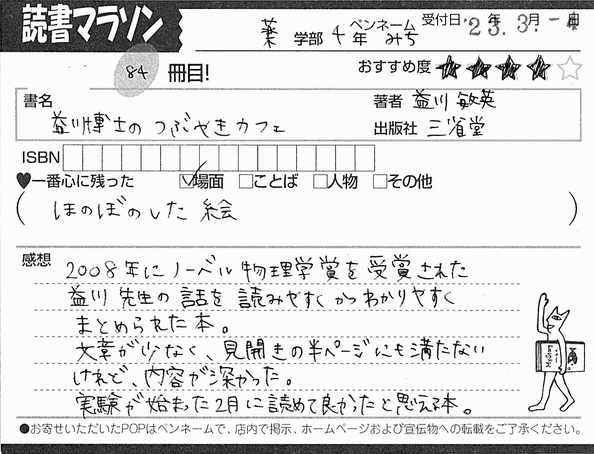 読書マラソン
薬 学部 4 年 ペンネーム みち
受付日 '23.年3.月
84 冊目!
おすすめ度 ★★★★☆
書名 益川博士のつぶやきカフェ
著者 益川 敏英
出版社 三省堂
ISBN
♥一番心に残った ☑場面 □ことば □人物 □その他
(ほのぼのした 絵)
感想
2008年にノーベル物理学賞を受賞された
益川先生の話を読みやすくかつわかりやすく
まとめられた本。
文章が少なく、見開きの半ページにも満たない
けれど、内容が深かった。
実験が始まった2月に読めて良かったと思える本。
●お寄せいただいたPOPはペンネームで、店内で掲示、ホームページおよび宣伝物への転載をご了承ください。